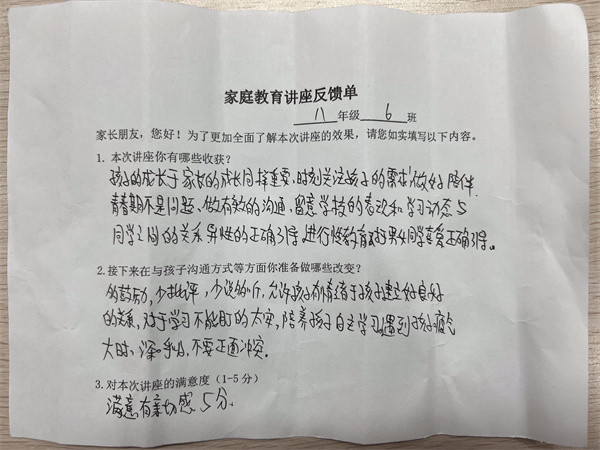 家庭教育讲座反馈单
八 年级 6 班
家长朋友，您好！为了更加全面了解本次讲座的效果，请您如实填写以下内容。
1. 本次讲座你有哪些收获？
孩子的成长于家长的成长同样重要，时刻关注孩子的需求，做好陪伴
青春期不是问题、做有效的沟通，留意学校的表现和学习动态与
同学之间的关系异性的正确引导，进行性教育 男女同学 正确引导。
2. 接下来在与孩子沟通方式等方面你准备做哪些改变？
多鼓励，少批评，少说多听，允许孩子有情绪于孩子建立好良好
的关系，对于学习不能盯的太实，陪养孩子自主学习遇到孩子
大时、深呼吸，不要正面冲突。
3. 对本次讲座的满意度（1-5 分）
满意有亲切感 5分。